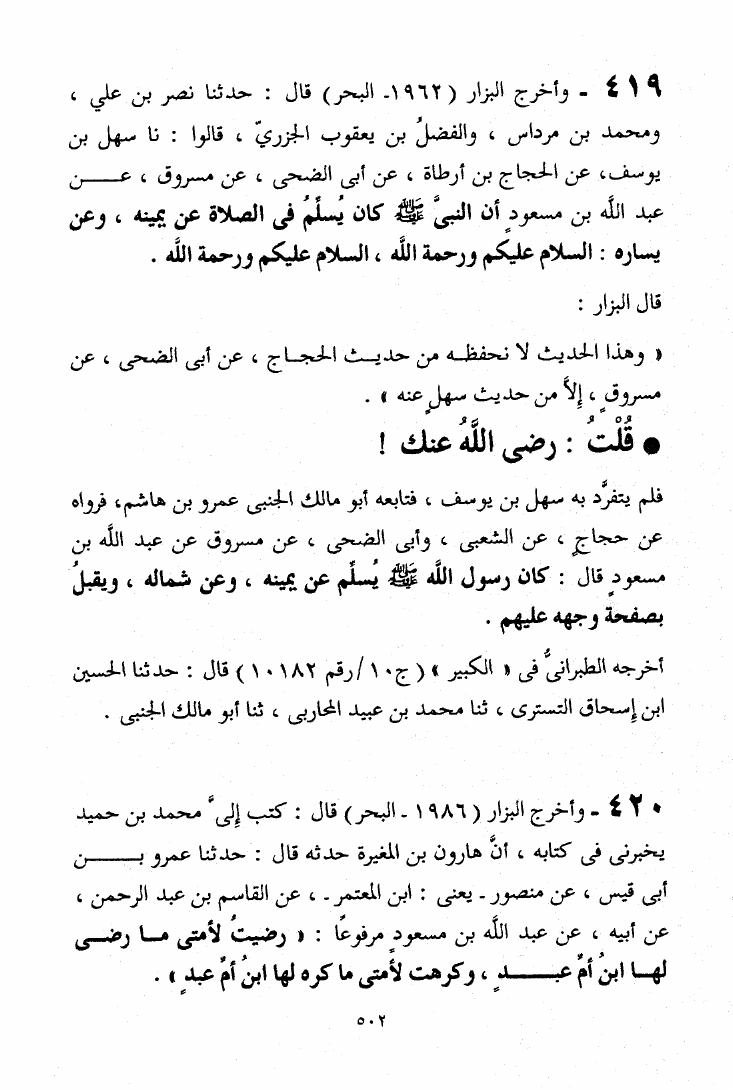 ٤١٩ - وأخرج البزار (١٩٦٢- البحر) قال : حدثنا نصر بن علي ،
ومحمد بن مرداس ، والفضلُ بن يعقوب الجزريّ ، قالوا : نا سهل بن
يوسف، عن الحجاج بن أرطاة ، عن أبى الضحى ، عن مسروق ، عــــن
عبد اللَّه بن مسعودٍ أن النبىَّ ﷺ كان يُسلِّمُ فى الصلاة عن يمينه ، وعن
يساره : السلام عليكم ورحمة اللَّه ، السلام عليكم ورحمة اللَّه .
قال البزار :
« وهذا الحديث لا نحفظـه من حديـث الحجـاج ، عن أبى الضحى ، عن
مسروقٍ ، إلاَّ من حديث سهلٍ عنه » .
● قُلْتُ : رضى اللَّهُ عنك !
فلم يتفرَّد به سهل بن يوسف ، فتابعه أبو مالك الجنبى عمرو بن هاشم، فرواه
عن حجاجٍ ، عن الشعبى ، وأبى الضحى ، عن مسروق عن عبد اللَّه بن
مسعودٍ قال : كان رسول اللَّه ﷺ يُسلِّم عن يمينه ، وعن شماله ، ويقبلُ
بصفحة وجهه عليهم .
أخرجه الطبرانىُّ فى « الكبير » (ج١٠/رقم ١٠١٨٢) قال : حدثنا الحسين
ابن إسحاق التسترى ، ثنا محمد بن عبيد المحاربى ، ثنا أبو مالك الجنبى .
٤٢٠ - وأخرج البزار (١٩٨٦ - البحر) قال : كتب إلىَّ محمد بن حميد
يخبرنى فى كتابه ، أنَّ هارون بن المغيرة حدثه قال : حدثنا عمرو بـــــن
أبى قيس ، عن منصور - يعنى : ابن المعتمر - ، عن القاسم بن عبد الرحمن ،
عن أبيه ، عن عبد اللَّه بن مسعودٍ مرفوعًا : « رضيتُ لأمتى مـا رضـى
لهـا ابنُ أمِّ عبــــدٍ ، وكرهت لأمتى ما كره لها ابنُ أمِّ عبدٍ » .
٥٠٢